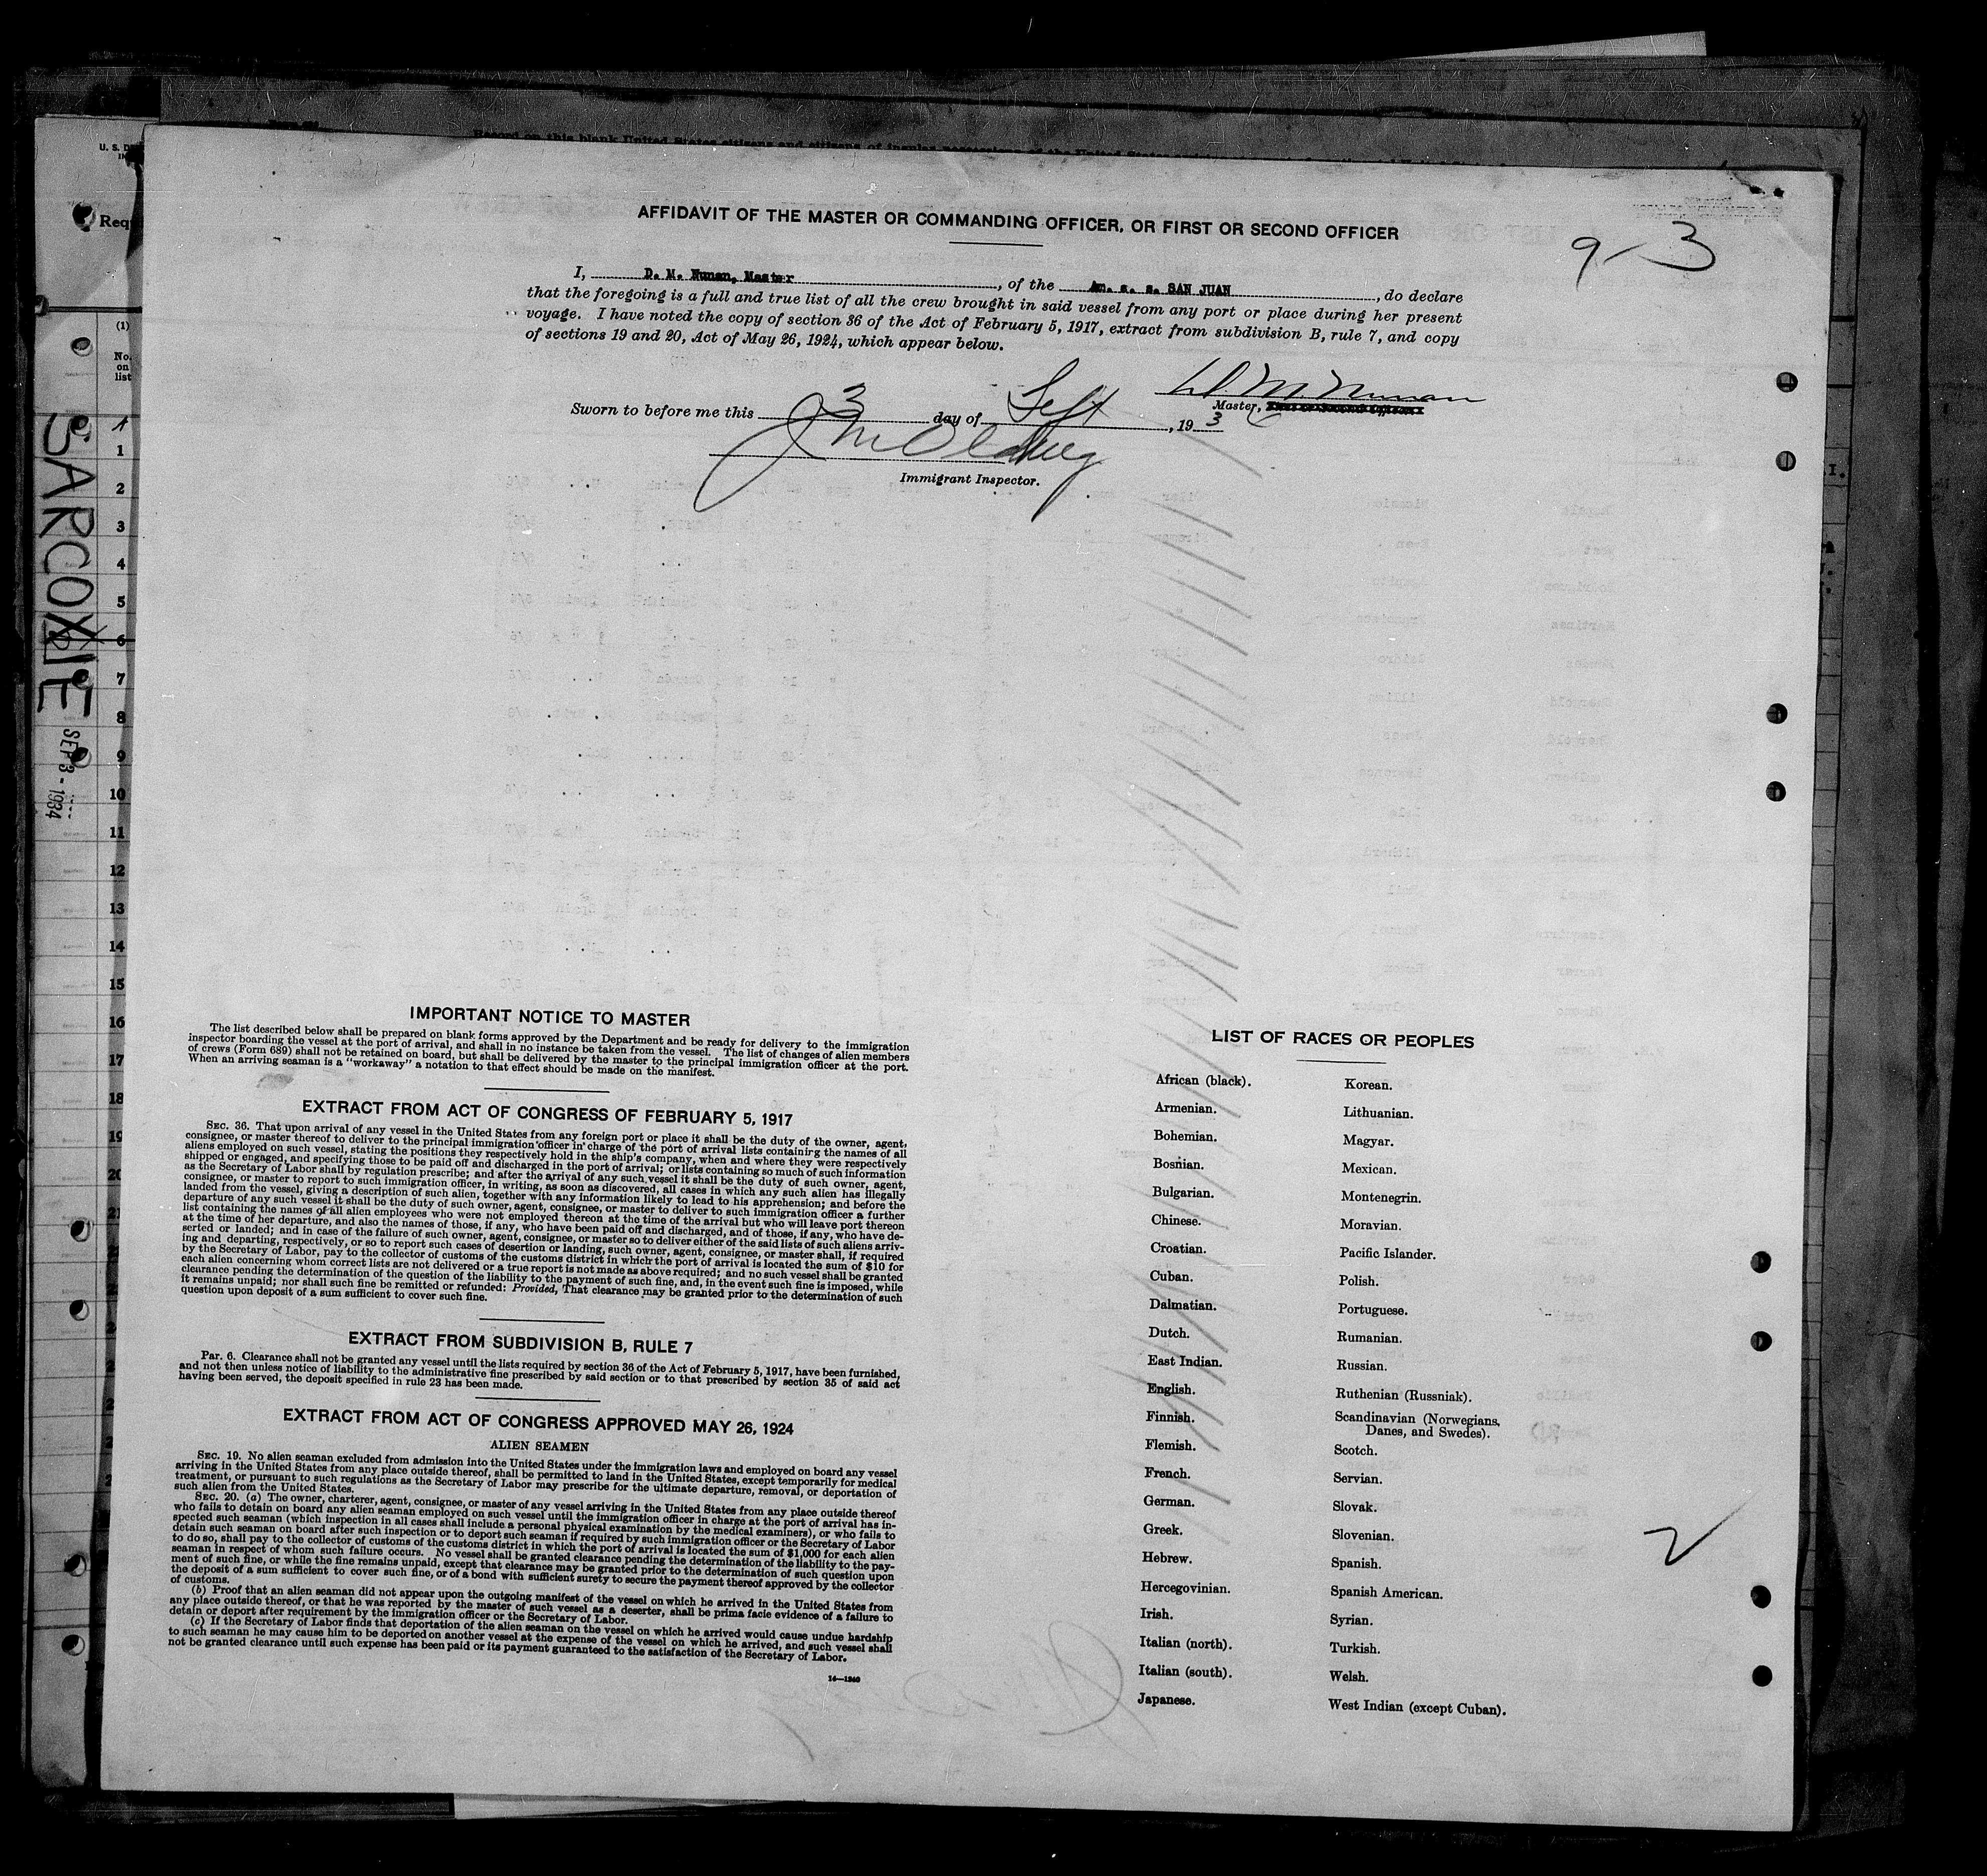 U. S. DE
IN
Requ
(1)
No.
on
list
SARCOXIE
SEP 3 - 1934
1
2
3
4
5
6
7
8
9
10
11
12
13
14
15
16
17
18
19
20
21
Record on this blank United States citizens and citizens of insular possessions of the United States
AFFIDAVIT OF THE MASTER OR COMMANDING OFFICER, OR FIRST OR SECOND OFFICER
9-3
I, D. M. Nunan, Master, of the Am. s. s. SAN JUAN, do declare
that the foregoing is a full and true list of all the crew brought in said vessel from any port or place during her present
voyage. I have noted the copy of section 36 of the Act of February 5, 1917, extract from subdivision B, rule 7, and copy
of sections 19 and 20, Act of May 26, 1924, which appear below.
D. M. Nunan
Master,
Sworn to before me this 3 day of Sept, 193
Immigrant Inspector.
IMPORTANT NOTICE TO MASTER
The list described below shall be prepared on blank forms approved by the Department and be ready for delivery to the immigration
inspector boarding the vessel at the port of arrival, and shall in no instance be taken from the vessel. The list of changes of alien members
of crews (Form 689) shall not be retained on board, but shall be delivered by the master to the principal immigration officer at the port.
When an arriving seaman is a "workaway" a notation to that effect should be made on the manifest.
EXTRACT FROM ACT OF CONGRESS OF FEBRUARY 5, 1917
SEC. 36. That upon arrival of any vessel in the United States from any foreign port or place it shall be the duty of the owner, agent,
consignee, or master thereof to deliver to the principal immigration officer in charge of the port of arrival lists containing the names of all
aliens employed on such vessel, stating the positions they respectively hold in the ship's company, when and where they were respectively
shipped or engaged, and specifying those to be paid off and discharged in the port of arrival; or lists containing so much of such information
as the Secretary of Labor shall by regulation prescribe; and after the arrival of any such vessel it shall be the duty of such owner, agent,
consignee, or master to report to such immigration officer, in writing, as soon as discovered, all cases in which any such alien has illegally
landed from the vessel, giving a description of such alien, together with any information likely to lead to his apprehension; and before the
departure of any such vessel it shall be the duty of such owner, agent, consignee, or master to deliver to such immigration officer a further
list containing the names of all alien employees who were not employed thereon at the time of the arrival but who will leave port thereon
at the time of her departure, and also the names of those, if any, who have been paid off and discharged, and of those, if any, who have de-
serted or landed; and in case of the failure of such owner, agent, consignee, or master so to deliver either of the said lists of such aliens arriv-
ing and departing, respectively, or so to report such cases of desertion or landing, such owner, agent, consignee, or master shall, if required
by the Secretary of Labor, pay to the collector of customs of the customs district in which the port of arrival is located the sum of $10 for
each alien concerning whom correct lists are not delivered or a true report is not made as above required; and no such vessel shall be granted
clearance pending the determination of the question of the liability to the payment of such fine, and, in the event such fine is imposed, while
it remains unpaid; nor shall such fine be remitted or refunded: Provided, That clearance may be granted prior to the determination of such
question upon deposit of a sum sufficient to cover such fine.
EXTRACT FROM SUBDIVISION B, RULE 7
Par. 6. Clearance shall not be granted any vessel until the lists required by section 36 of the Act of February 5, 1917, have been furnished,
and not then unless notice of liability to the administrative fine prescribed by said section or to that prescribed by section 35 of said act
having been served, the deposit specified in rule 23 has been made.
EXTRACT FROM ACT OF CONGRESS APPROVED MAY 26, 1924
ALIEN SEAMEN
SEC. 19. No alien seaman excluded from admission into the United States under the immigration laws and employed on board any vessel
arriving in the United States from any place outside thereof, shall be permitted to land in the United States, except temporarily for medical
treatment, or pursuant to such regulations as the Secretary of Labor may prescribe for the ultimate departure, removal, or deportation of
such alien from the United States.
SEC. 20. (a) The owner, charterer, agent, consignee, or master of any vessel arriving in the United States from any place outside thereof
who fails to detain on board any alien seaman employed on such vessel until the immigration officer in charge at the port of arrival has in-
spected such seaman (which inspection in all cases shall include a personal physical examination by the medical examiners), or who fails to
detain such seaman on board after such inspection or to deport such seaman if required by such immigration officer or the Secretary of Labor
to do so, shall pay to the collector of customs of the customs district in which the port of arrival is located the sum of $1,000 for each alien
seaman in respect of whom such failure occurs. No vessel shall be granted clearance pending the determination of the liability to the pay-
ment of such fine, or while the fine remains unpaid, except that clearance may be granted prior to the determination of such question upon
the deposit of a sum sufficient to cover such fine, or of a bond with sufficient surety to secure the payment thereof approved by the collector
of customs.
(b) Proof that an alien seaman did not appear upon the outgoing manifest of the vessel on which he arrived in the United States from
any place outside thereof, or that he was reported by the master of such vessel as a deserter, shall be prima facie evidence of a failure to
detain or deport after requirement by the immigration officer or the Secretary of Labor.
(c) If the Secretary of Labor finds that deportation of the alien seaman on the vessel on which he arrived would cause undue hardship
to such seaman he may cause him to be deported on another vessel at the expense of the vessel on which he arrived, and such vessel shall
not be granted clearance until such expense has been paid or its payment guaranteed to the satisfaction of the Secretary of Labor.
14—1240
LIST OF RACES OR PEOPLES
African (black).
Armenian.
Bohemian.
Bosnian.
Bulgarian.
Chinese.
Croatian.
Cuban.
Dalmatian.
Dutch.
East Indian.
English.
Finnish.
Flemish.
French.
German.
Greek.
Hebrew.
Hercegovinian.
Irish.
Italian (north).
Italian (south).
Japanese.
Korean.
Lithuanian.
Magyar.
Mexican.
Montenegrin.
Moravian.
Pacific Islander.
Polish.
Portuguese.
Rumanian.
Russian.
Ruthenian (Russniak).
Scandinavian (Norwegians,
Danes, and Swedes).
Scotch.
Servian.
Slovak.
Slovenian.
Spanish.
Spanish American.
Syrian.
Turkish.
Welsh.
West Indian (except Cuban).